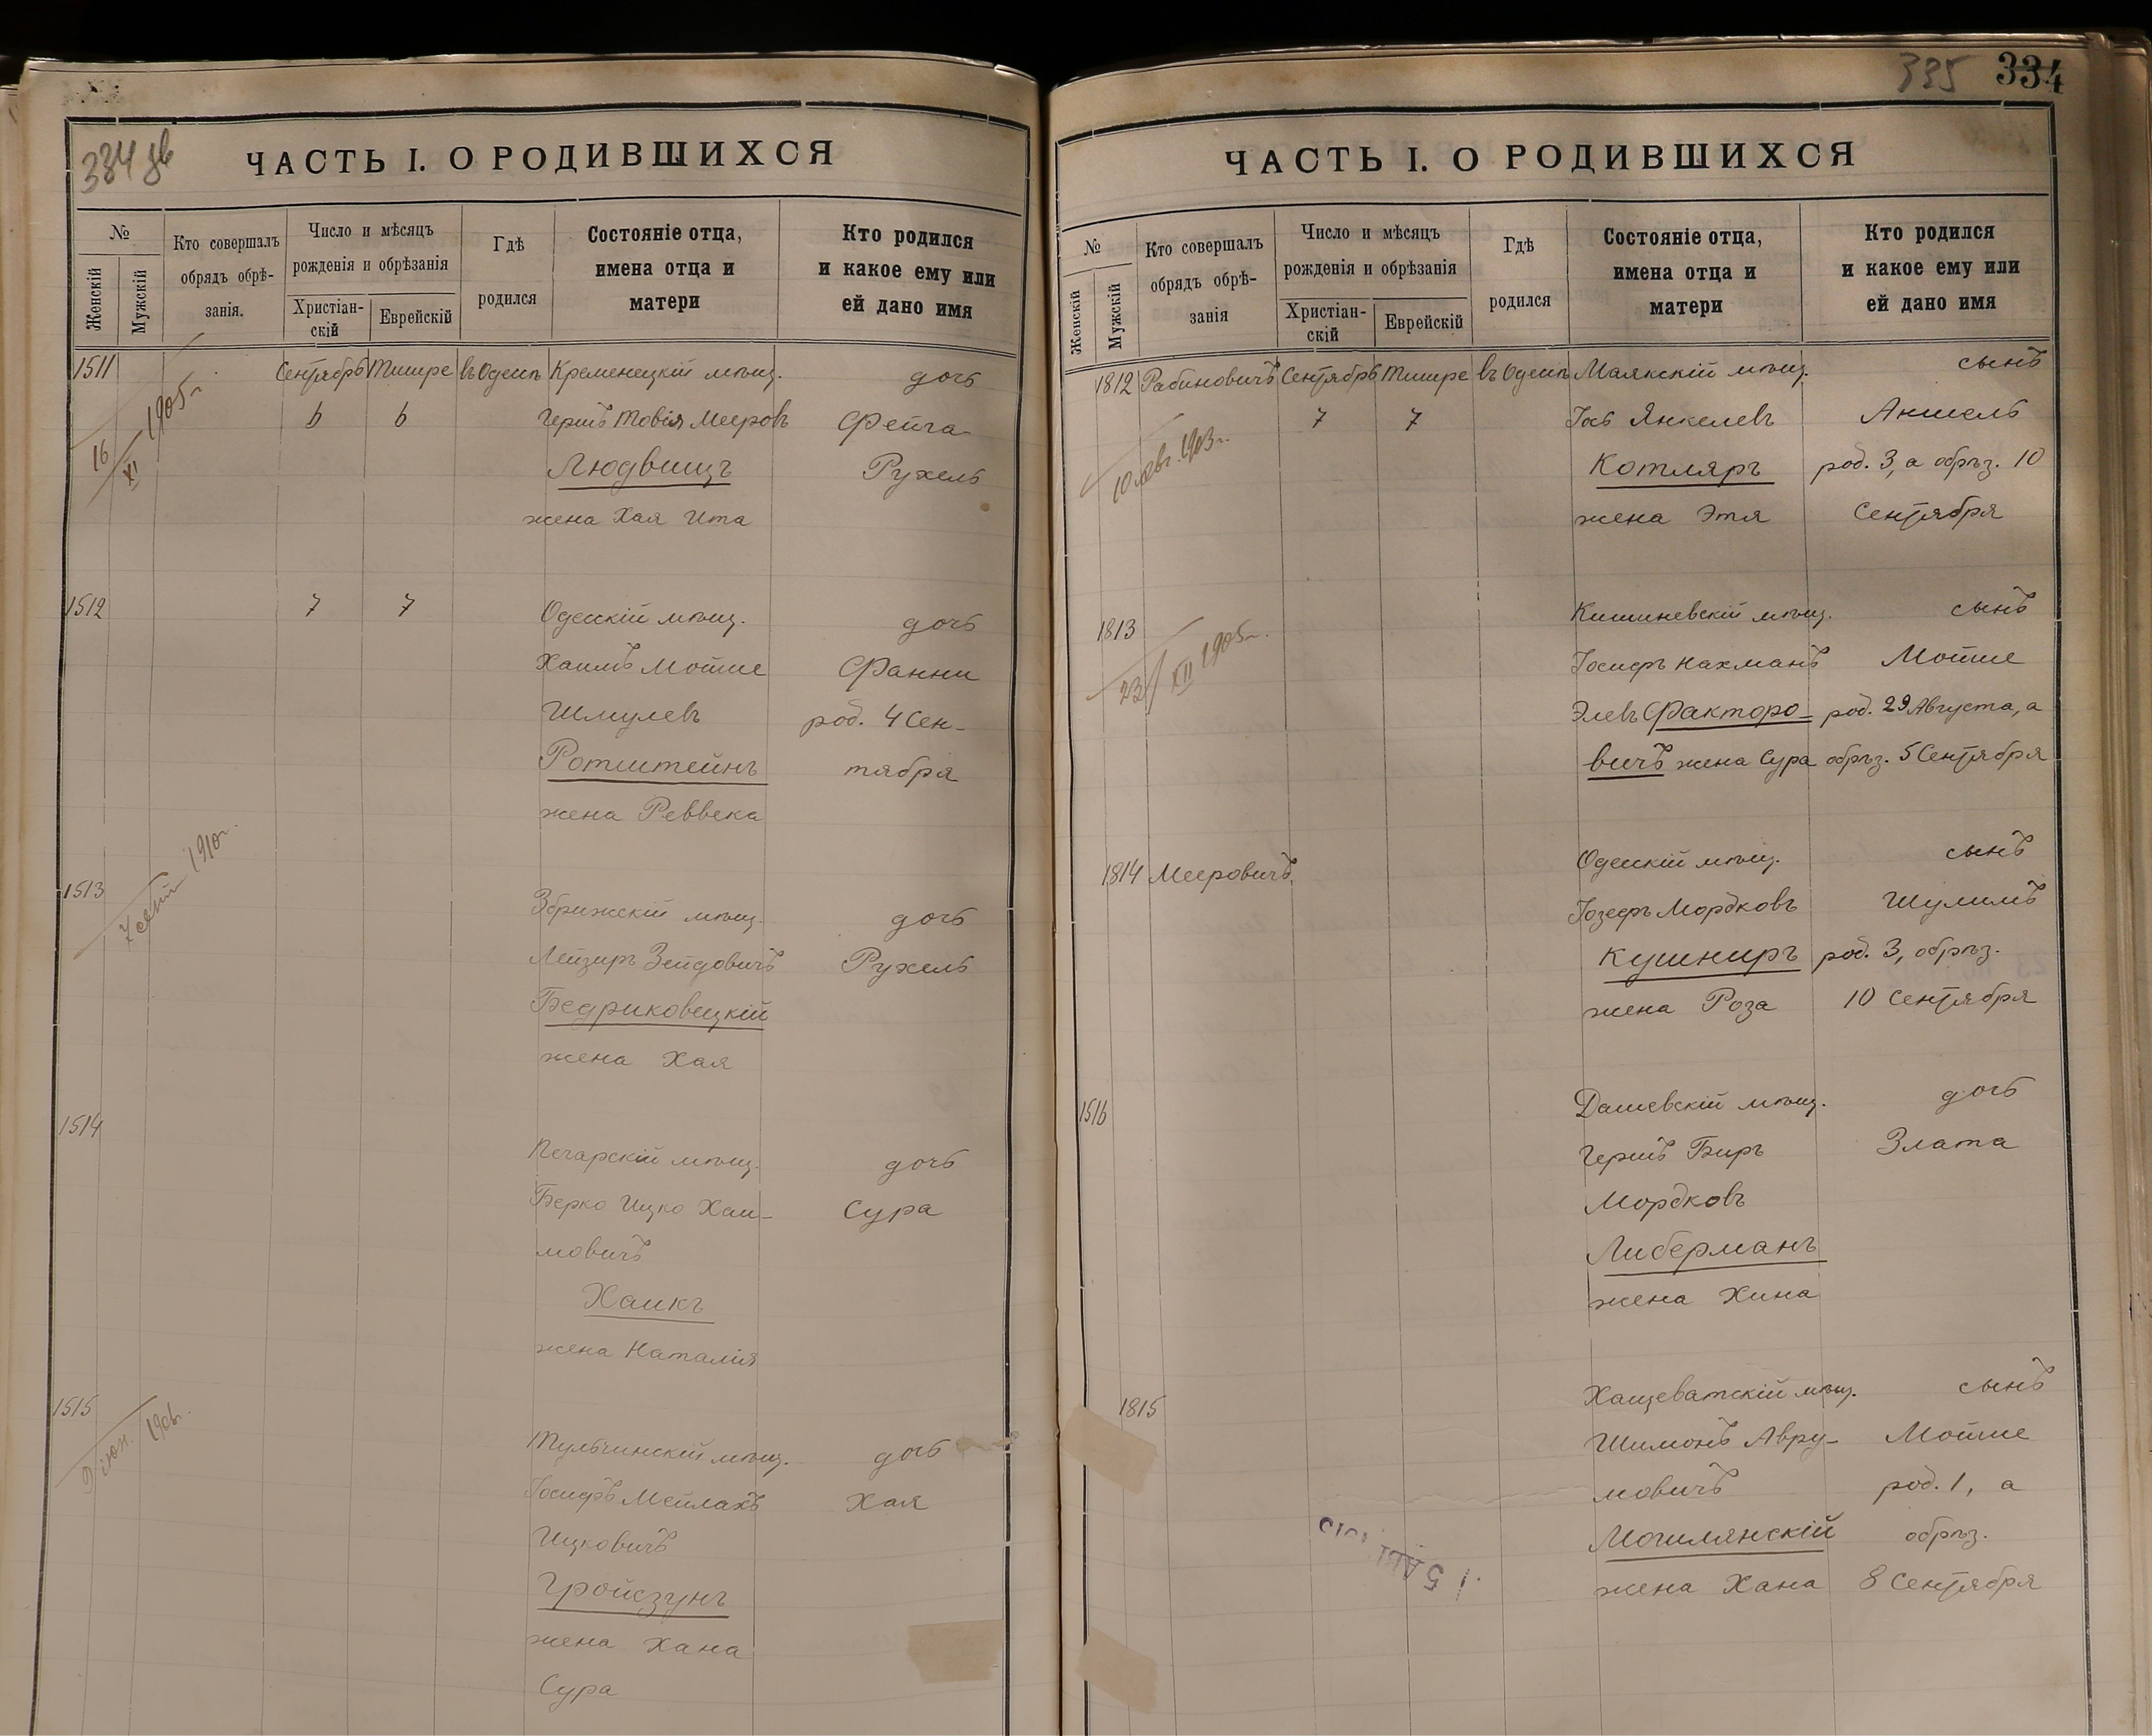 334 об
ЧАСТЬ I. О РОДИВШИХСЯ
№
Женскій
Мужскій
Кто совершалъ
обрядъ обрѣ-
занія.
Число и мѣсяцъ
рожденія и обрѣзанія
Христіан-
скій
Еврейскій
Гдѣ
родился
Состояніе отца,
имена отца и
матери
Кто родился
и какое ему или
ей дано имя
1511 Сентябрь Тишре въ Одессѣ Кременецкій мѣщ. дочь
16/XI 1905 г.
6 6 Гершъ Товія Мееровъ Фейга
Людвищъ Рухель
жена Хая Ита
1512 7 7 Одесскій мѣщ. дочь
Хаимъ Мойше Фанни
Шмулевъ род. 4 Сен-
Ротштейнъ тября
жена Реввека
1513 Збрижскій мѣщ. дочь
7 сент 1910 г.
Лейзиръ Зейдовичъ Рухель
Бедриковецкій
жена Хая
1514 Печарскій мѣщ. дочь
Берко Ицко Хаи-
Сура
мовичъ
Хаикъ
жена Наталія
1515 Тульчинскій мѣщ. дочь
Іосифъ Мейлахъ Хая
Ицковичъ
Гройсзунъ
жена Хана
Сура
335 334
ЧАСТЬ I. О РОДИВШИХСЯ
№
Женскій
Мужскій
Кто совершалъ
обрядъ обрѣ-
занія
Число и мѣсяцъ
рожденія и обрѣзанія
Христіан-
скій
Еврейскій
Гдѣ
родился
Состояніе отца,
имена отца и
матери
Кто родился
и какое ему или
ей дано имя
1812 Рабиновичъ Сентябрь Тишре въ Одессѣ Маякскій мѣщ. сынъ
7 7 Іось Янкелевъ Аншель
10 авг. 1903 г.
Котляръ род. 3, а обрѣз. 10
жена Этя Сентября
1813 Кишиневскій мѣщ. сынъ
23/XII 1905 г.
Іосифъ Нахманъ Мойше
Элевъ Факторо- род. 29 Августа, а
вичъ жена Сура обрѣз. 5 Сентября
1814 Мееровичъ Одесскій мѣщ. сынъ
Іозефъ Мордковъ Шулимъ
Кушниръ род. 3, обрѣз.
жена Роза 10 Сентября
1516 Дашевскій мѣщ. дочь
Гершъ Биръ Злата
Мордковъ
Либерманъ
жена Хина
1815 Хащеватскій мѣщ. сынъ
Шимонъ Авру- Мойше
мовичъ род. 1, а
Могилянскій обрѣз.
жена Хана 8 Сентября